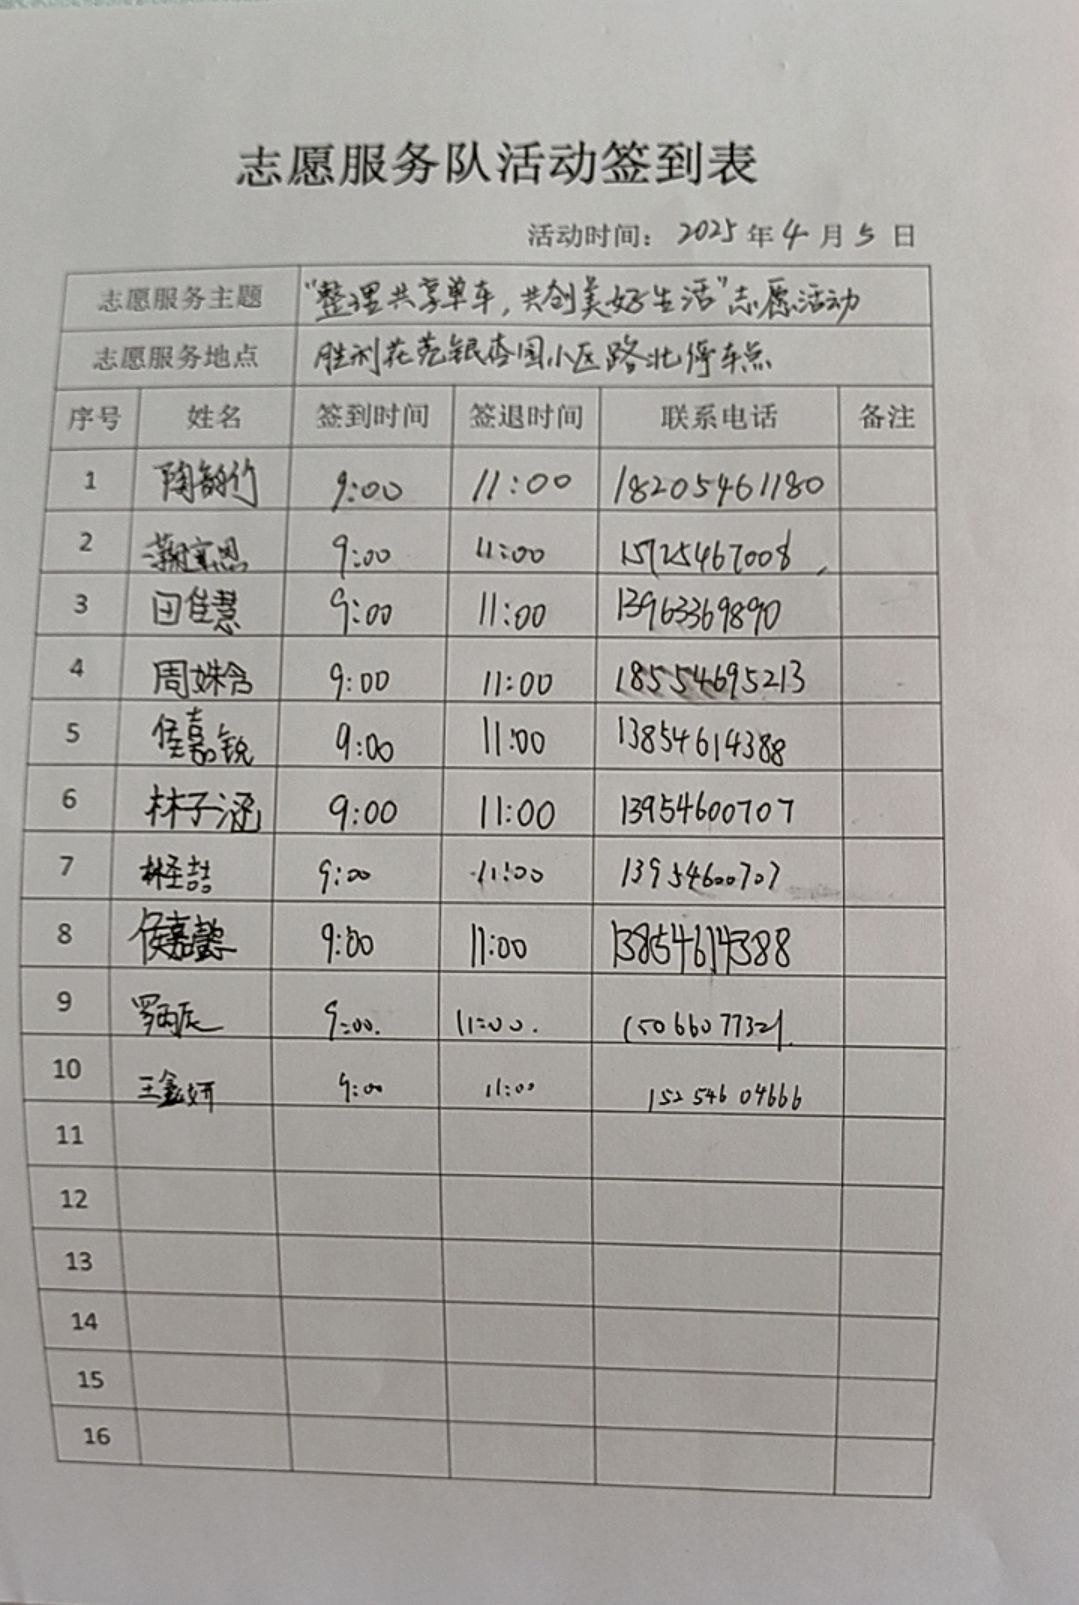 志愿服务队活动签到表
活动时间：2025年4月5日
志愿服务主题 "整理共享单车，共创美好生活"志愿活动
志愿服务地点 胜利花苑银杏园小区路北停车点
序号 姓名 签到时间 签退时间 联系电话 备注
1 陶韵竹 9:00 11:00 18205461180
2 9:00 11:00 15725467008
3 田佳慧 9:00 11:00 13963369890
4 周姝含 9:00 11:00 18554695213
5 侯嘉锐 9:00 11:00 13854614388
6 林子涵 9:00 11:00 13954600707
7 林圣喆 9:00 11:00 13954600707
8 侯嘉懿 9:00 11:00 13854614388
9 罗丙辰 9:00. 11:00. 15066077321.
10 王鑫妍 9:00 11:00 15254604666
11
12
13
14
15
16